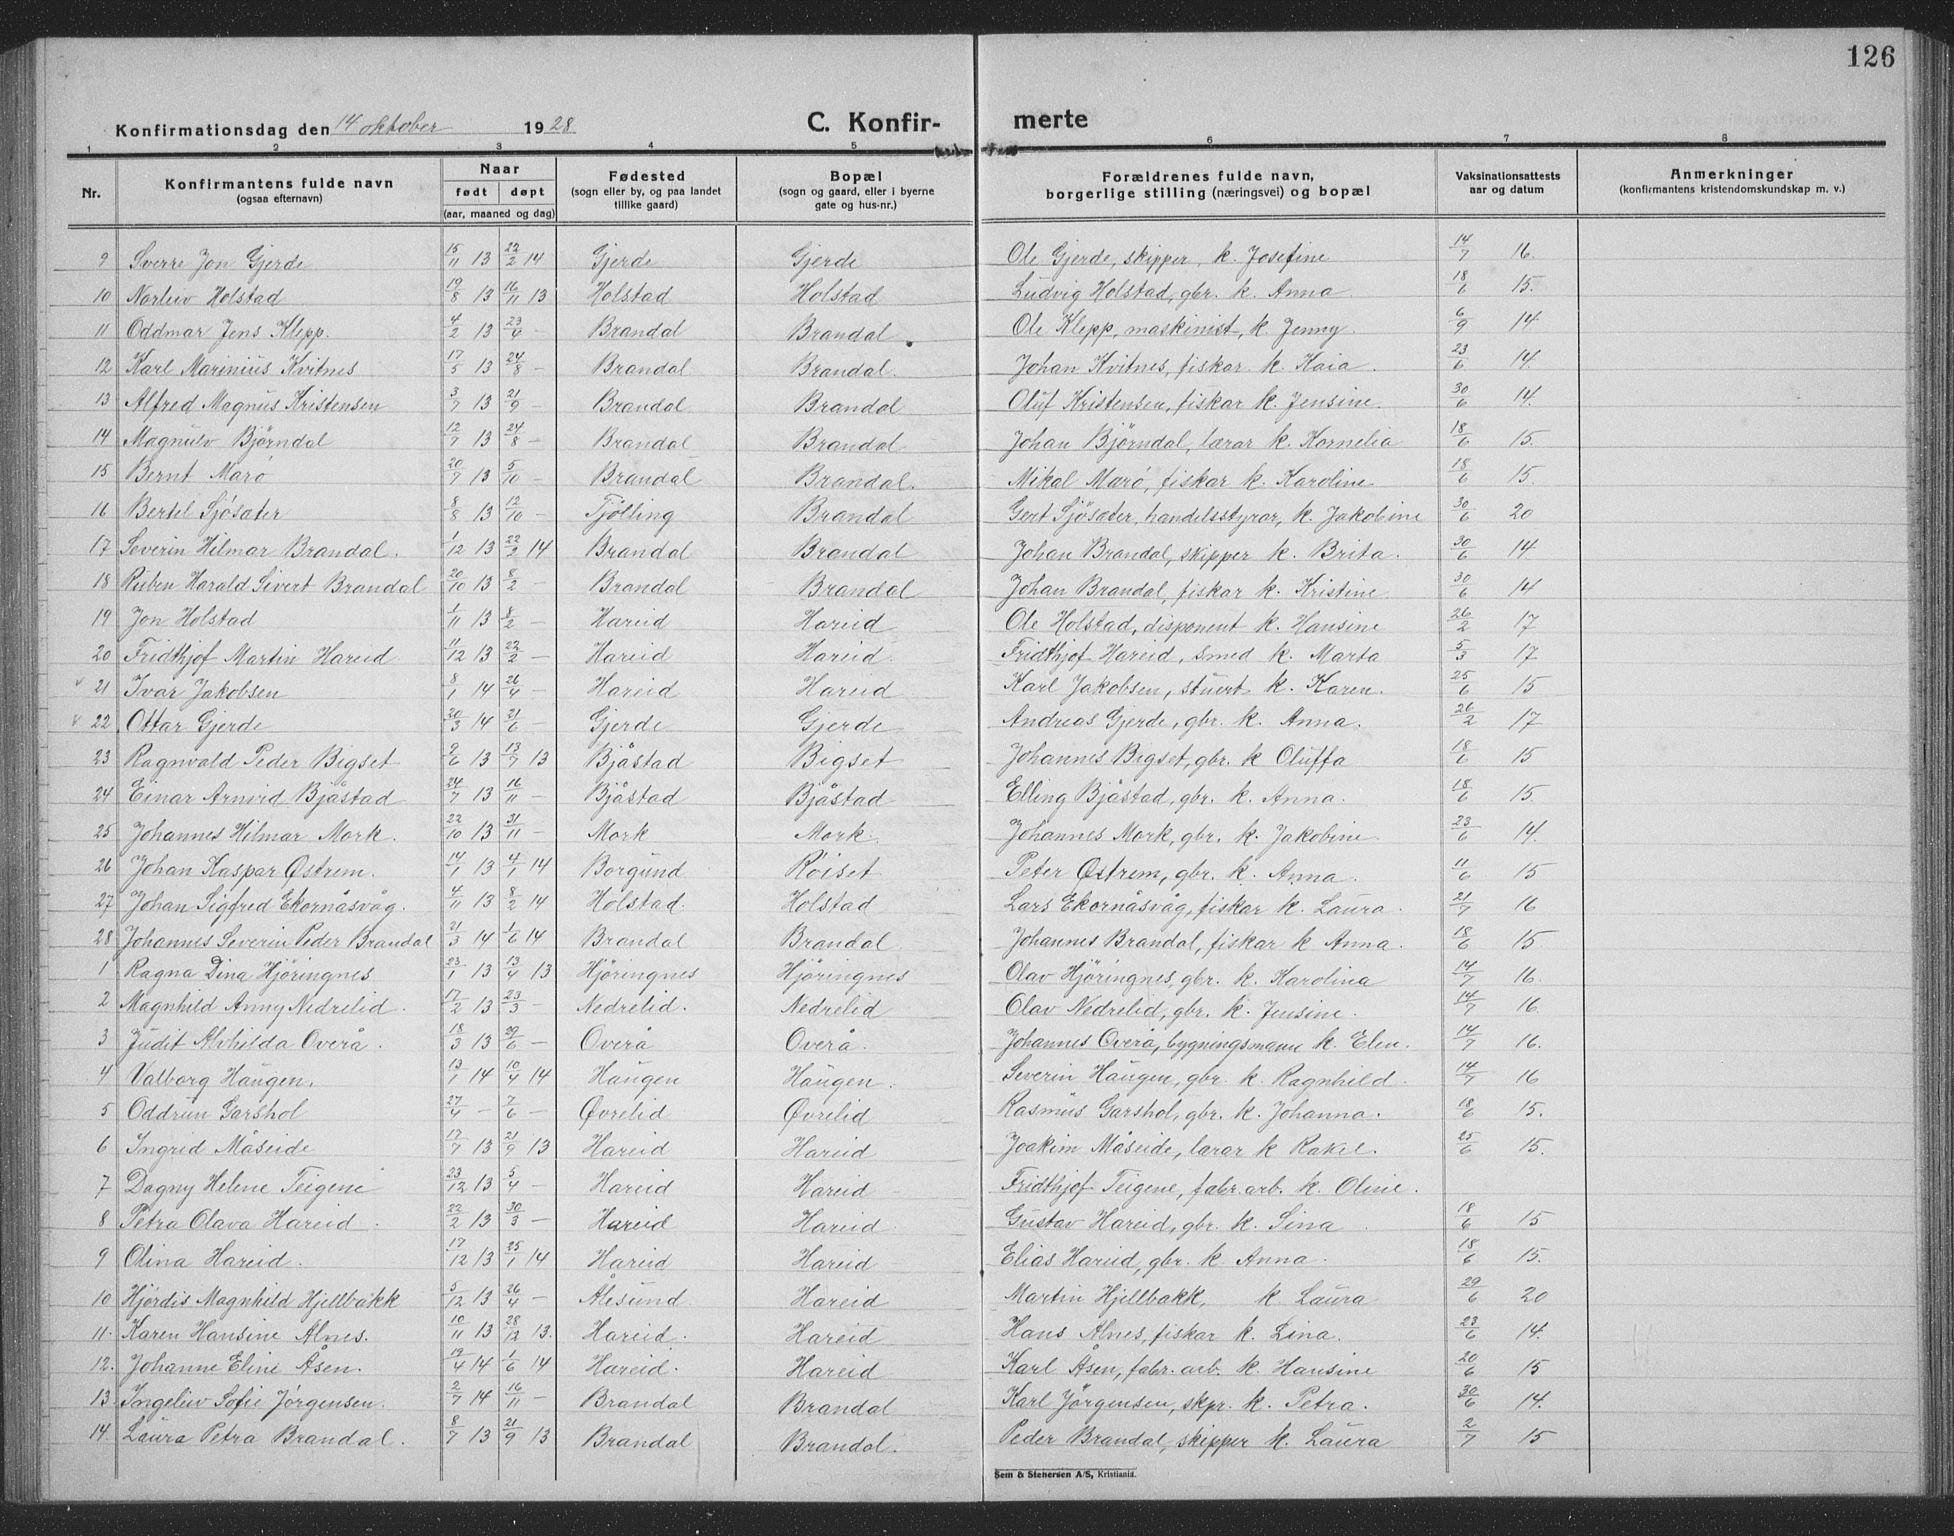 126
Konfirmationsdag den 14 oktober 1928 C. Konfir- merte
1 2 3 4 5 6 7 8
Nr. Konfirmantens fulde navn (ogsaa efternavn) Naar født døpt (aar, maaned og dag) Fødested (sogn eller by, og paa landet tillike gaard) Bopæl (sogn og gaard, eller i byerne gate og hus-nr.) Forældrenes fulde navn, borgerlige stilling (næringsvei) og bopæl Vaksinationsattests aar og datum Anmerkninger (konfirmantens kristendomskundskap m. v.)
9 Sverre Jon Gjerde 15/11 13 22/2 14 Gjerde Gjerde Ole Gjerde, skipper, k. Josefine 14/7 16.
10 Norleiv Holstad 19/8 13 16/11 13 Holstad Holstad Ludvig Holstad, gbr. k. Anna 18/6 15.
11 Oddmar Jens Klepp. 4/2 13 23/4 - Brandal Brandal Ole Klepp, maskinist, k. Jenny. 6/9 14
12 Karl Marinius Kvitnes 17/5 13 24/8 - Brandal Brandal. Johan Kvitnes, fiskar. k. Kaia. 23/6 14.
13 Alfred Magnus Kristensen 3/7 13 21/9 - Brandal Brandal Oluf Kristensen, fiskar k. Jensine. 30/6 14.
14 Magnulv Bjørndal 12/7 13 24/8 - Brandal Brandal Johan Bjørndal, lærar k. Kornelia 18/6 15.
15 Bernt Marø 20/7 13 5/10 - Brandal Brandal. Mikal Marø, fiskar k. Karoline 18/6 15.
16 Bertel Sjøsæter 8/8 13 12/10 - Tjølling Brandal Gert Sjøsæter, handelsstyrar, k. Jakobine 30/6 20
17 Severin Hilmar Brandal. 1/12 13 22/2 14 Brandal Brandal Johan Brandal, skipper k. Brita. 30/6 14
18 Ruben Harald Sivert Brandal 20/10 13 8/2 - Brandal Brandal Johan Brandal, fiskar k. Kristine 30/6 14
19 Jon Holstad 1/11 13 8/2 - Hareid Hareid Ole Holstad, disponent k. Hansine 26/2 17
20 Fridthjof Martin Hareid 11/12 13 22/2 - Hareid Hareid. Fridthjof Hareid, smed k. Marta 5/3 17
v 21 Ivar Jakobsen 8/1 14 26/4 - Hareid Hareid Karl Jakobsen, stuert k. Karen. 25/6 15
v 22 Ottar Gjerde 20/3 14 21/6 - Gjerde Gjerde Andreas Gjerde, gbr. k. Anna. 26/2 17
23 Ragnvald Peder Bigset 2/6 13 13/7 13 Bjåstad Bigset Johannes Bigset, gbr. k Oluffa 18/6 15
24 Einar Arnvid Bjåstad 24/7 13 16/11 - Bjåstad Bjåstad Elling Bjåstad, gbr. k. Anna. 18/6 15.
25 Johannes Hilmar Mork. 22/10 13 31/11 - Mork Mork. Johannes Mork, gbr. k. Jakobine. 23/6 14.
26 Johan Kaspar Østrem. 14/1 13 4/1 14 Borgund Røiset Peter Østrem, gbr. k. Anna. 11/6 15
27 Johan Sigfred Ekornåsvåg. 4/11 13 8/2 14 Holstad. Holstad Lars Ekornåsvåg, fiskar k. Laura. 21/7 16
28 Johannes Severin Peder Brandal 21/3 14 1/6 14 Brandal Brandal Johannes Brandal, fiskar k Anna. 18/6 15
1 Ragna Dina Hjøringnes 23/1 13 13/4 13 Hjøringnes Hjøringnes Olav Hjøringnes, gbr. k. Karolina 14/7 16.
2 Magnhild Anny Nedrelid. 17/2 13 23/3 - Nedrelid. Nedrelid Olav Nedrelid, gbr. k. Jensine. 14/7 16.
3 Judit Alvhilda Overå. 18/3 13 29/6 - Overå Overå. Johannes Overå, bygningsmann k. Elen. 14/7 16.
4 Valborg Haugen. 13/1 14 10/4 14 Haugen Haugen. Severin Haugen, gbr. k. Ragnhild. 14/7 16
5 Oddrun Garshol 27/4 - 7/6 - Øvrelid Øvrelid Rasmus Garshol, gbr. k. Johanna. 18/6 15.
6 Ingrid Måseide 17/7 13 21/9 13 Hareid Hareid Joakim Måseide, lærar k Rakel. 25/6 15.
7 Dagny Helene Teigene 23/12 13 5/4 - Hareid Hareid Fridthjof Teigene, fabr. arb. k. Oline.
8 Petra Olava Hareid. 22/2 13 30/3 - Hareid Hareid. Gustav Hareid, gbr. k. Sina. 18/6 15
9 Olina Hareid. 17/12 13 25/1 14 Hareid Hareid Elias Hareid, gbr. k Anna. 18/6 15.
10 Hjørdis Magnhild Hjellbakk 5/12 13 26/4 - Ålesund. Hareid Martin Hjellbakk, k Laura 29/6 20
11. Karen Hansine Alnes. 10/11 13 28/12 13. Hareid. Hareid. Hans Alnes, fiskar k. Lina. 23/6 14.
12. Johanne Eline Åsen. 19/4 14 1/6 14 Hareid. Hareid Karl Åsen, fabr. arb. k. Hansine 20/6 15
13. Ingeleiv Sofie Jørgensen. 2/7 14 16/11 - Brandal Brandal Karl Jørgensen, skpr. k. Petra. 30/6 14.
14. Laura Petra Brandal. 8/7 13 21/9 13 Brandal Brandal. Peder Brandal, skipper k. Laura 2/7 15
Sem & Stenersen A/S, Kristiania.